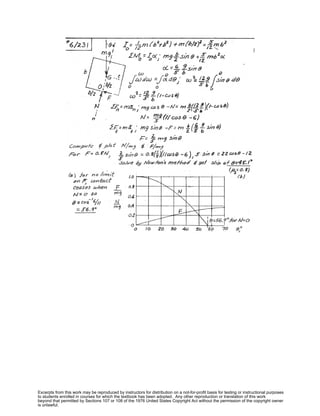 *6/231
θ
mg
b
G
t
b/2
O
b/2
F
N
n
I_O = 1/12 m(b²+b²) + m(b/2)² = 5/12 mb²
ΣM_O = I_O α; mg b/2 sin θ = 5/12 mb²α
α = 6/5 g/b sin θ
∫ω dω = ∫α dθ; ω² = 12/5 g/b ∫ sin θ dθ
ω² = 12/5 g/b (1-cos θ)
mg cos θ - N = m b/2 12/5 g/b (1-cos θ)
N = mg/5 (11 cos θ - 6)
mg sin θ - F = m b/2 (6/5 g/b sin θ)
F = 2/5 mg sin θ
Compute & plot N/mg & F/mg
For F = 0.8N, 2/5 sin θ = 0.8(1/5)(11 cos θ - 6), 5 sin θ = 22 cos θ - 12
Solve by Newton's method & get slip at θ = 45.1°
(μs = 0.8)
(a) for no limit (b)
on F, contact
ceases when
N = 0 so
θ = cos⁻¹ 6/11
= 56.9°
F/mg
N/mg
1.0
0.8
0.6
0.4
0.2
0
N
F
θ = 56.9° for N=0
0 10 20 30 40 50 60 70 θ,°
Excerpts from this work may be reproduced by instructors for distribution on a not-for-profit basis for testing or instructional purposes
to students enrolled in courses for which the textbook has been adopted. Any other reproduction or translation of this work
beyond that permitted by Sections 107 or 108 of the 1976 United States Copyright Act without the permission of the copyright owner
is unlawful.